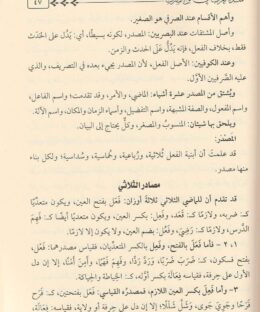 ٤٧
وأهم الأقسام عند الصرفي هو الصغير.
وأصل المشتقات عند البصريين: المصدر، لكونه بسيطًا، أي: يَدُلُّ على الحَدَث
فقط، بخلاف الفعل، فإنه يَدُلُّ على الحدث والزمن.
وعند الكوفيين: الأصل الفعل، لأن المصدر يجيء بعده في التصريف، والذي
عليه الصَّرفيين الأوَّل.
ويُشتق من المصدر عشرة أشياء: الماضي، والأمر، وقد تقدمت، واسم
الفاعل، والمفعول، والصفة المشبهة، واسم التفضيل، وأسماء الزمان والمكان، واسم الآلة.
ويلحق بها شيئان: المنسوبُ والمصغر، وكلٌّ يحتاج إلى البيان.
المَصْدَر:
قد علمت أن أبنية الفعل ثُلاثية، ورباعية، وخُماسية، وسُداسية؛ ولكل بناء
منها مصدر.
مصادر الثلاثي
قد تقدم أن للماضي الثلاثي ثلاثة أوزان: فَعَل بفتح العين، ويكون متعديًا
كـ: ضربه، ولازمًا كـ: قعد، وفَعِل: بكسر العين، ويكون متعديًا أيضًا كـ: فَهِمَ
الدَّرس، ولازمًا كـ: رَضِيَ، وفَعُلَ: بضم العين، ولا يكون إلا لازمًا.
١، ٢ – فأما فَعَل بالفتح، وفَعِل بالكسر المتعديَّان، فقياس مصدرهما: فَعْل،
بفتح
الأول على حِرفة، فقياسه فِعَالة بكسر أوَّله، كـ: الخياطة والحياكة.
٣ – وأما فَعِل بكسر العين اللازم، فمصدره القياسي: فَعَل، بفتحتين، كـ: فَرِحَ